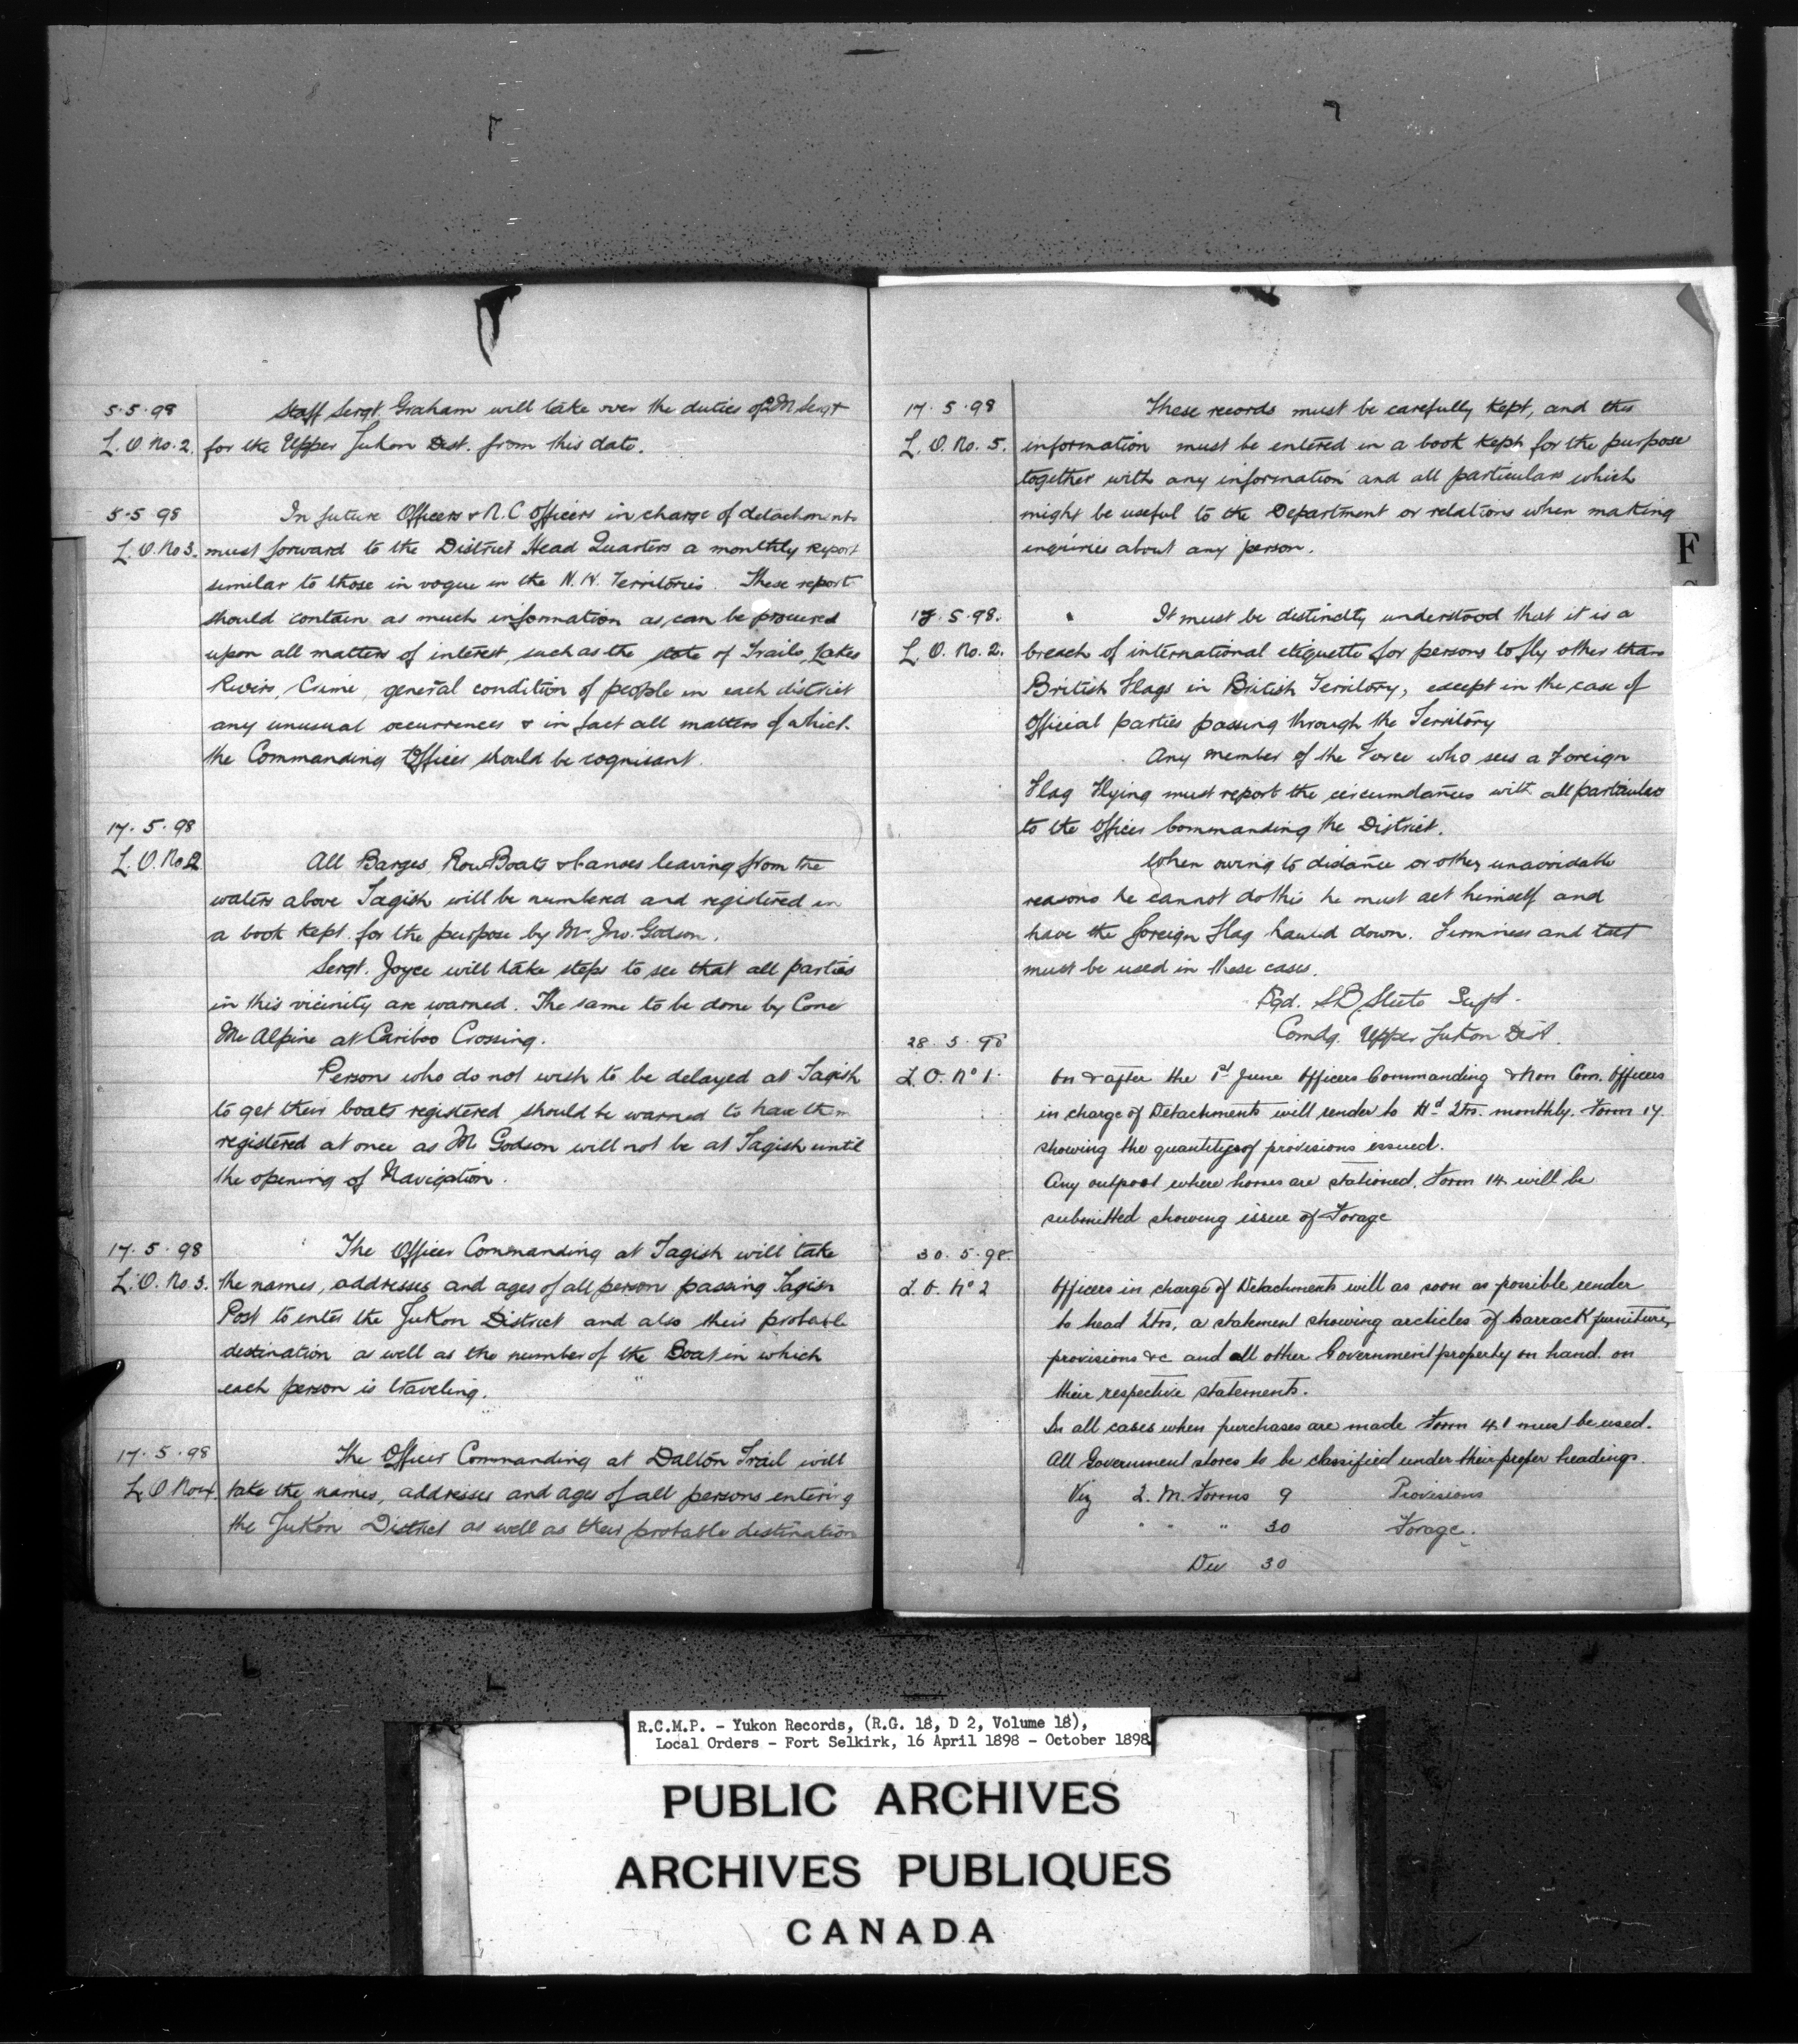 5.5.98 Staff Sergt. Graham will take over the duties of Q M Sergt
L. O. No. 2. for the Upper Yukon Dist. from this date.
5.5 98 In future Officers & N.C Officers in charge of detachments
L. O. No 3. must forward to the District Head Quarters a monthly report
similar to those in vogue in the N.W. Territories. These report
should contain as much information as can be procured
upon all matters of interest, such as the state of Trails, Lakes
Rivers, Crime, general condition of people in each district
any unusual occurrences & in fact all matters of which
the Commanding Officer should be cognisant.
17.5.98
L. O. No 2 All Barges, Row Boats & Canoes leaving from the
waters above Tagish will be numbered and registered in
a book kept for the purpose by Mr Jno. Godson.
Sergt. Joyce will take steps to see that all parties
in this vicinity are warned. The same to be done by Cons
Mc Alpine at Cariboo Crossing.
Persons who do not wish to be delayed at Tagish
to get their boats registered should be warned to have them
registered at once as Mr Godson will not be at Tagish until
the opening of Navigation.
17.5.98 The Officer Commanding at Tagish will take
L. O. No 3. the names, addresses and ages of all person passing Tagish
Post to enter the Yukon District and also their probable
destination as well as the number of the Boat in which
each person is traveling.
17.5.98 The Officer Commanding at Dalton Trail will
L. O No 4. take the names, addresses and ages of all persons entering
the Yukon District as well as their probable destination
17.5.98 These records must be carefully kept, and this
L. O. No. 5. information must be entered in a book kept for the purpose
together with any information and all particulars which
might be useful to the Department or relations when making
inquiries about any person.
F
17.5.98. It must be distinctly understood that it is a
L. O. No. 2. breach of international etiquette for persons to fly other than
British Flags in British Territory, except in the case of
Official parties passing through the Territory
Any member of the Force who sees a Foreign
Flag Flying must report the circumstances with all particulars
to the Officer Commanding the District.
When owing to distance or other unavoidable
reasons he cannot do this he must act himself and
have the foreign Flag hauled down. Firmness and tact
must be used in these cases.
Sgd. S B Steele Supt.
Comdg. Upper Yukon Dist.
28.5.98
L. O. No 1. On & after the 1st June Officers Commanding & Non Com. Officers
in charge of Detachments will render to Hd Qrs. monthly. Form 17
showing the quantitys of provisions issued.
Any outpost where horses are stationed. Form 14 will be
submitted showing issue of Forage
30.5.98.
L. O. No 2 Officers in charge of Detachments will as soon as possible render
to head Qrs, a statement showing arcticles of Barrack furniture,
provisions &c and all other Government property on hand. on
their respective statements.
In all cases when purchases are made Form 41 must be used.
All Government stores to be classified under their proper headings.
Viz Q. M. Forms 9 Provisions
" " " 30 Forage.
30
R.C.M.P. - Yukon Records, (R.G. 18, D 2, Volume 18),
Local Orders - Fort Selkirk, 16 April 1898 - October 1898
PUBLIC ARCHIVES
ARCHIVES PUBLIQUES
CANADA